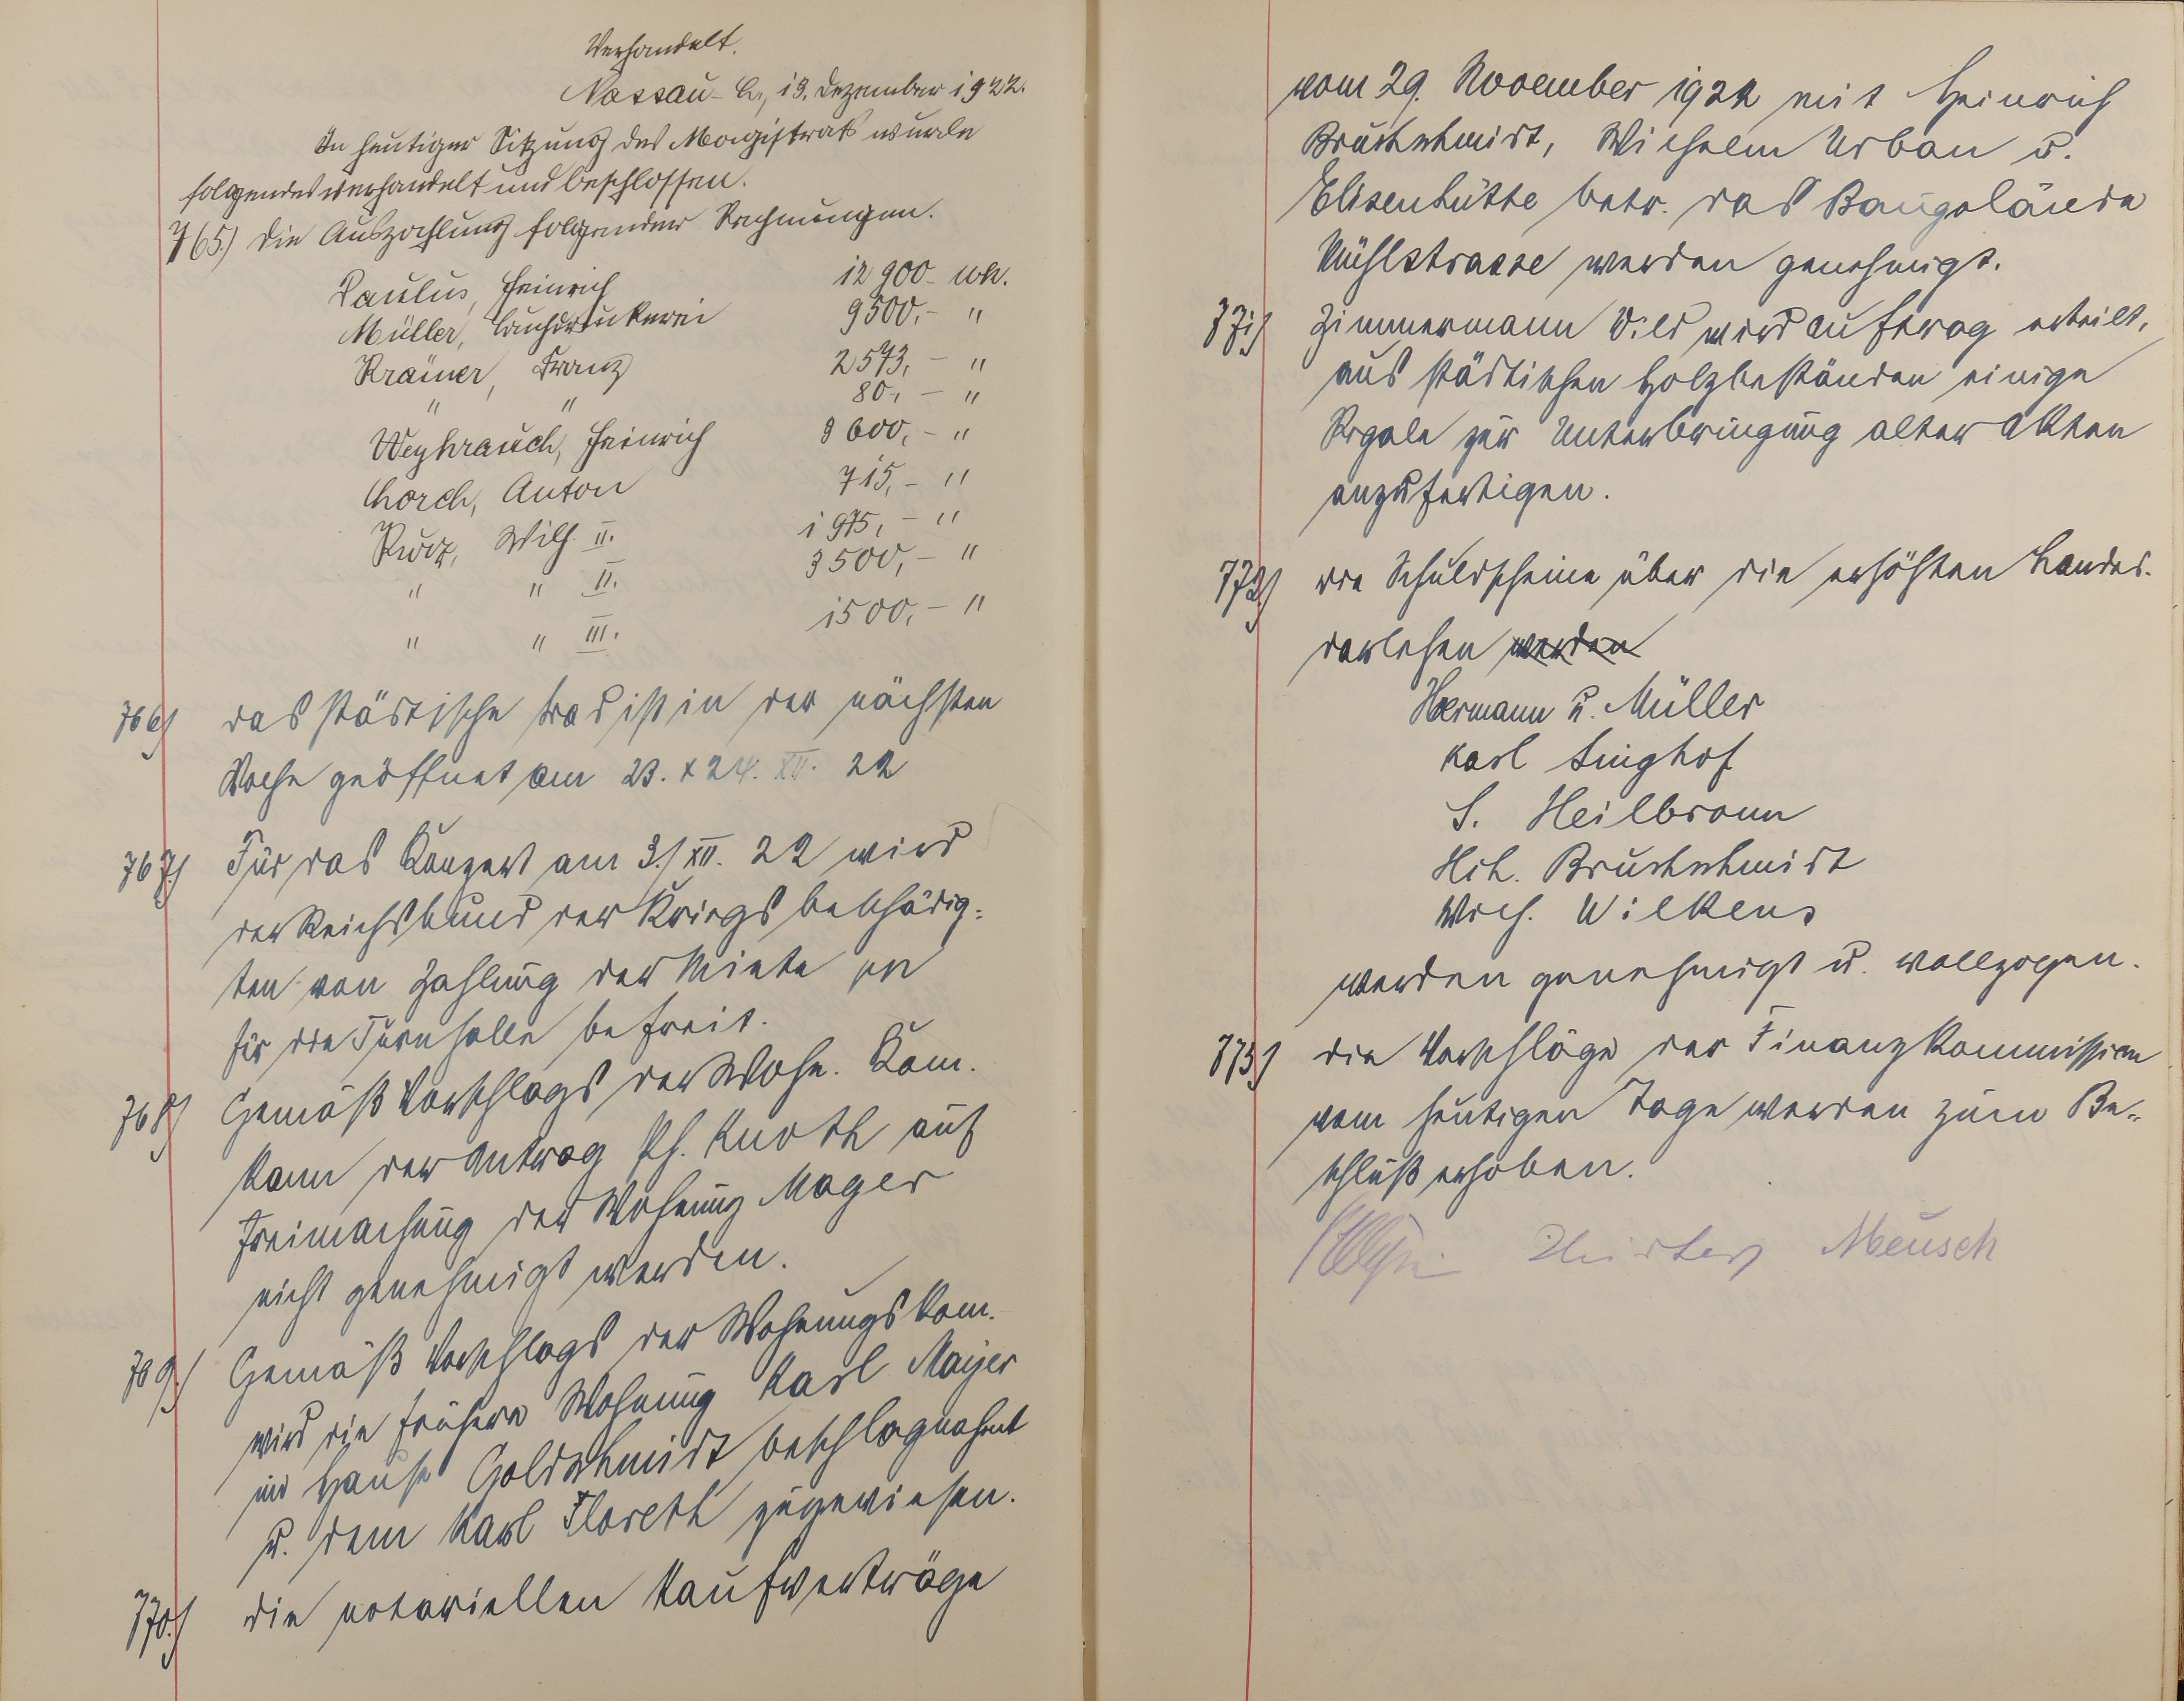 Verhandelt.
Nassau-L., 19. Dezember 1922.
In heutiger Sitzung des Magistrats wurde
folgendes verhandelt und beschlossen.
765.) Die Auszahlung folgender Rechnungen.
Paulus, Heinrich 12 900.- Mk.
Müller, Buchdruckerei 9500,- "
Krämer, Franz 2573,- "
" " 80,- "
Weyhrauch, Heinrich 9600,- "
Lorch, Anton 715,- "
Kurz, Wilh. II. 1975,- "
" " II. 3500,- "
" " III. 1500,- "
766) Das städtische Bad ist in der nächsten
Woche geöffnet am 23. + 24. XII. 22
767.) Für das Konzert am 3./XII. 22 wird
der Reichsbund der Kriegsbeschädig-
ten von Zahlung der Miete
für die Turnhalle befreit.
768) Gemäß Vorschlags der Wohn. Kom.
kann der Antrag Ph. Knoth auf
Freimachung der Wohnung Mager
nicht genehmigt werden.
769.) Gemäß Vorschlags der Wohnungskom.
wird die frühere Wohnung Karl Mayer
im Hause Goldschmidt beschlagnahmt
u. dem Karl Floreth zugewiesen.
770.) Die notariellen Kaufverträge
vom 29. November 1922 mit Heinrich
Bruchschmidt, Wilhelm Urban u.
Elisenhütte betr. das Baugelände
Mühlstrasse werden genehmigt.
771) Zimmermann Bild wird Auftrag erteilt,
aus städtischen Holzbeständen einige
Regale zur Unterbringung alter Akten
anzufertigen.
772) Die Schuldscheine über die erhöhten Landes-
darlehen werden
Hermann u. Müller
Karl Singhof
S. Heilbronn
Hch. Bruchschmidt
Wilh. Wilkens
werden genehmigt u. vollzogen.
773) Die Vorschläge der Finanzkommission
vom heutigen Tage werden zum Be-
schluß erhoben.
Meusch